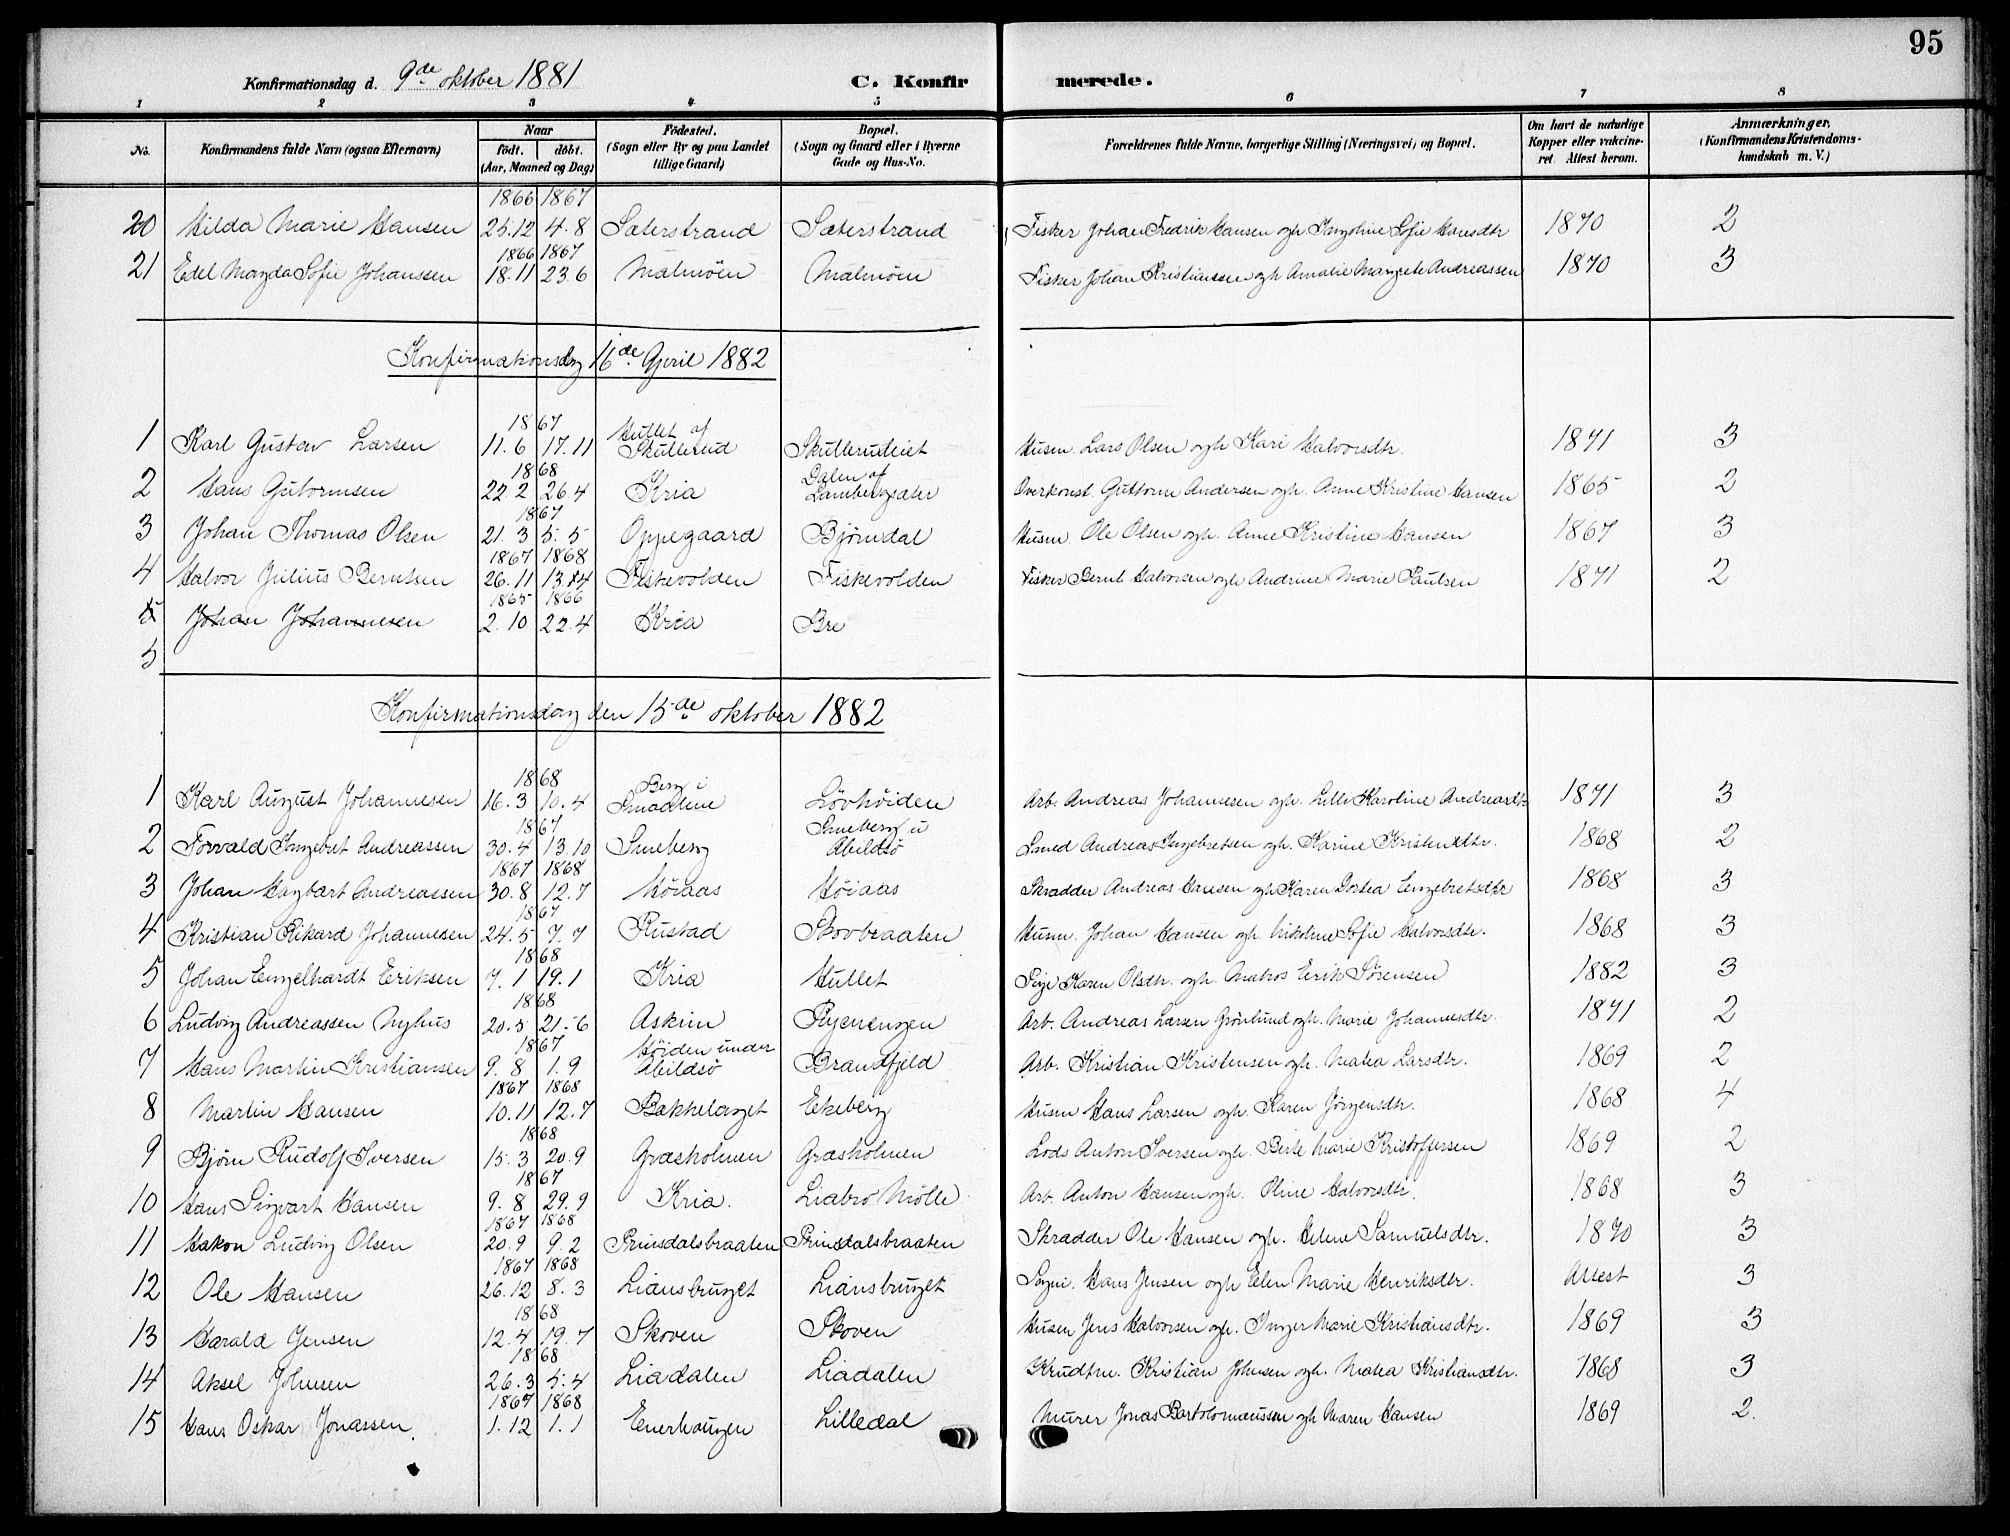 95
Konfirmationsdag d. 9de oktober 1881 C. Konfirmerede.
1 2 3 4 5 6 7 8
No. Konfirmandens fulde Navn (ogsaa Efternavn) Naar født. døbt. (Aar, Maaned og Dag) Fødested. (Sogn eller By og paa Landet tillige Gaard) Bopæl. (Sogn og Gaard eller i Byerne Gade og Hus-No. Forældrenes fulde Navne, borgerlige Stilling (Næringsvei) og Bopæl. Om havt de naturlige Kopper eller vakcineret. Attest herom. Anmærkninger, (Konfirmandens Kristendomskundskab m. V.)
1866 1867
20 Hilda Marie Hansen 25.12 4.8 Sæterstrand Sæterstrand Fisker Johan Fredrik Hansen og h. Ingoline Sofie Hansdtr 1870 2
1866 1867
21 Edel Magda Sofie Johanssen 18.11 23.6 Malmöen Malmöen Fisker Johan Kristianssen og h. Amalie Margrete Andreassen 1870 3
Konfirmationsdag 16de April 1882
1867
1 Karl Gustav Larsen 11.6 17.11 Hullet af Skullerud Skullerudeiet Husm. Lars Olsen og h. Kari Halvorsdtr. 1871 3
1868
2 Hans Gutormsen 22.2 26.4 Kria Dalen af Lambergsæter Overkonst. Guttorm Andersen og h. Anne Kristine Hansen 1865 2
1867
3 Johan Thomas Olsen 21.3 5.5 Oppegaard Björndal Husm. Ole Olsen og h. Anne Kristine Hansen 1867 3
1867 1868
4 Halvor Julius Berntsen 26.11 13.4 Fiskevolden Fiskevolden Fisker Bernt Halvorsen og h. Andrine Marie Paulsen 1871 2
1865 1866
5 Johan Johannesen 2.10 22.4 Kria Bre
5
Konfirmationsdag den 15de oktober 1882
1868
1 Karl August Johannesen 16.3 10.4 Berg i Smaalene Lövhöiden Arb. Andreas Johannesen og h. Lille Karoline Andreasdtr 1871 3
1867
2 Torvald Ingebret Andreassen 30.4 13.10 Smeberg Smeberg u Abildsö Smed Andreas Ingebretsen og h. Karine Kristensdtr. 1868 2
1867 1868
3 Johan Hagbart Andreassen 30.8 12.7 Höiaas Höiaas Skrædder Andreas Hansen og h. Karen Dortea Engebretsdtr 1868 3
1867
4 Kristian Rikard Johannesen 24.5 7.7 Rustad Skovbraaten Husm. Johan Hansen og h. Nikoline Sofie Halvorsdtr. 1868 3
1868
5 Johan Engelhardt Eriksen 7.1 19.1 Kria Hullet Pige Karen Olsdtr. og h. Matros Erik Sörensen 1882 3
1868
6 Ludvig Andreassen Nyhus 20.5 21.6 Askim Ryenengen Arb. Andreas Larsen Grönlund og h. Marie Johannesdtr. 1871 2
1867
7 Hans Martin Kristiansen 9.8 1.9 Höiden under Abildsö Brandfjeld Arb. Kristian Kristensen og h. Matea Larsdtr. 1869 2
1867 1868
8 Martin Hansen 10.11 12.7 Bækkelaget Ekeberg Husm Hans Larsen og h. Karen Jörgensdtr. 1868 4
1868
9 Björn Rudolf Iversen 15.3 20.9 Græsholmen Græsholmen Lods Anton Iversen og h. Berte Marie Kristoffersen 1869 2
1867
10 Hans Sigvart Hansen 9.8 29.9 Kria. Liabro Mölle Arb. Anton Hansen og h. Oline Halvorsdtr. 1868 3
1867 1868
11 Hakon Ludvig Olsen 20.9 9.2 Prinsdalsbraaten Prinsdalsbraaten Skrædder Ole Hansen og h. Helene Samuelsdtr. 1870 3
1867 1868
12 Ole Hansen 26.12 8.3 Liansbruget Liansbruget Hans Jensen og h. Elen Marie Henriksdtr. Attest 3
1868
13 Harald Jensen 12.4 19.7 Skoven Skoven Husm Jens Halvorsen og h. Inger Marie Kristiansdtr. 1869 3
1868
14 Aksel Johnsen 26.3 5.4 Liadalen Liadalen Krudtm. Kristian Johnsen og h. Matea Kristiansdtr. 1868 3
1867 1868
15 Hans Oskar Jonassen. 1.12 1.1 Enerhaugen Lilledal Murer Jonas Bartolomæussen og h. Maren Hansen 1869 2.